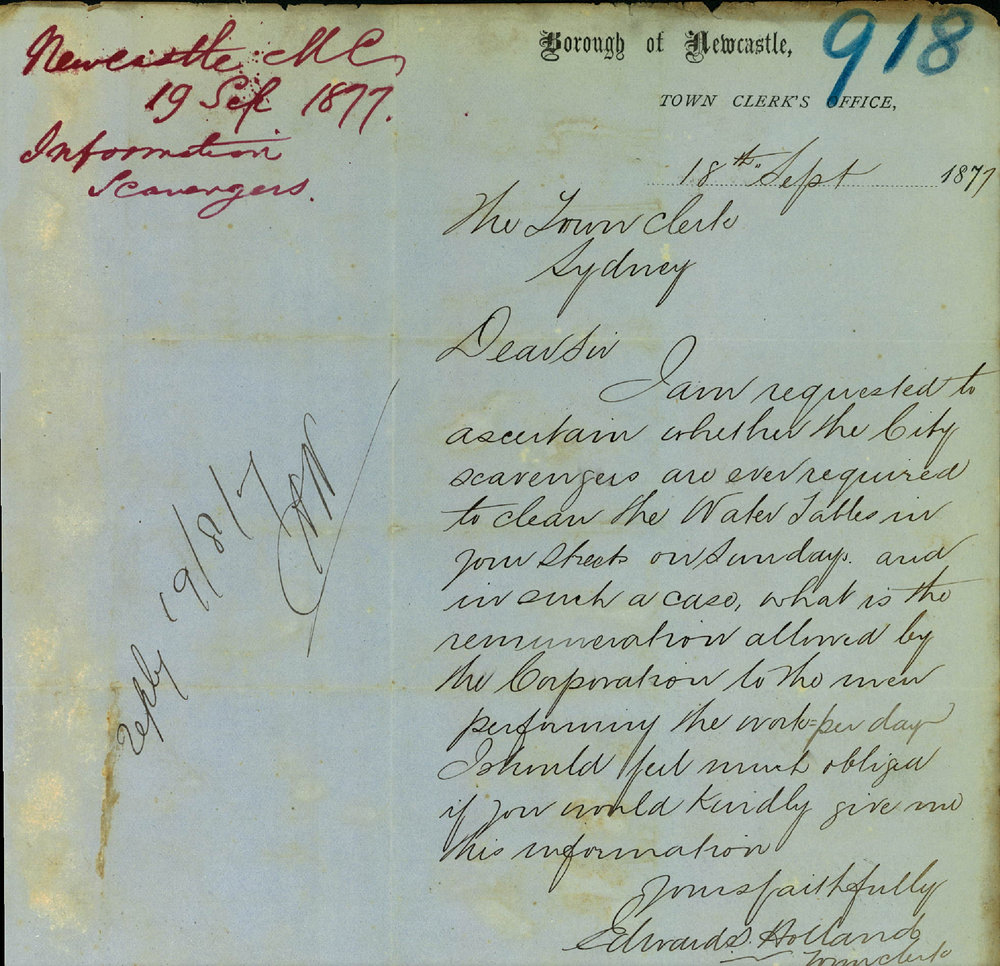 Newcastle M C,
19 Sep 1877.
Information
Scavengers.
Borough of Newcastle,
918
TOWN CLERK'S OFFICE,
18th Sept 1877
The Town Clerk
Sydney
Dear Sir
I am requested to
ascertain whether the City
scavengers are ever required
to clean the Water Tables in
your streets on Sundays. and
in such a case, what is the
remuneration allowed by
the Corporation to the men
performing the work=per day
I should feel much obliged
if you would Kindly give me
this information
Yours faithfully
Edward S. Holland
Town Clerk
reply 19/8/7